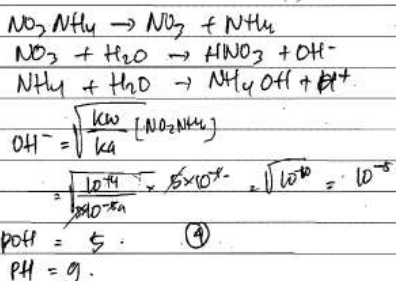 NO3 NH4 → NO3 + NH4
NO3 + H2O → HNO3 + OH-
NH4 + H2O → NH4 OH + H+
OH- = √ Kw/Ka [NO2NH4]
= √ 10-14 × 5×10 = √10-10 = 10-5
POH = 5. ④
PH = 9.